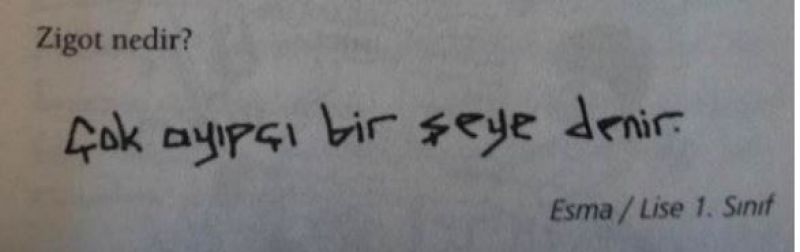 Zigot nedir?
Çok ayıpçı bir şeye denir.
Esma / Lise 1. Sınıf